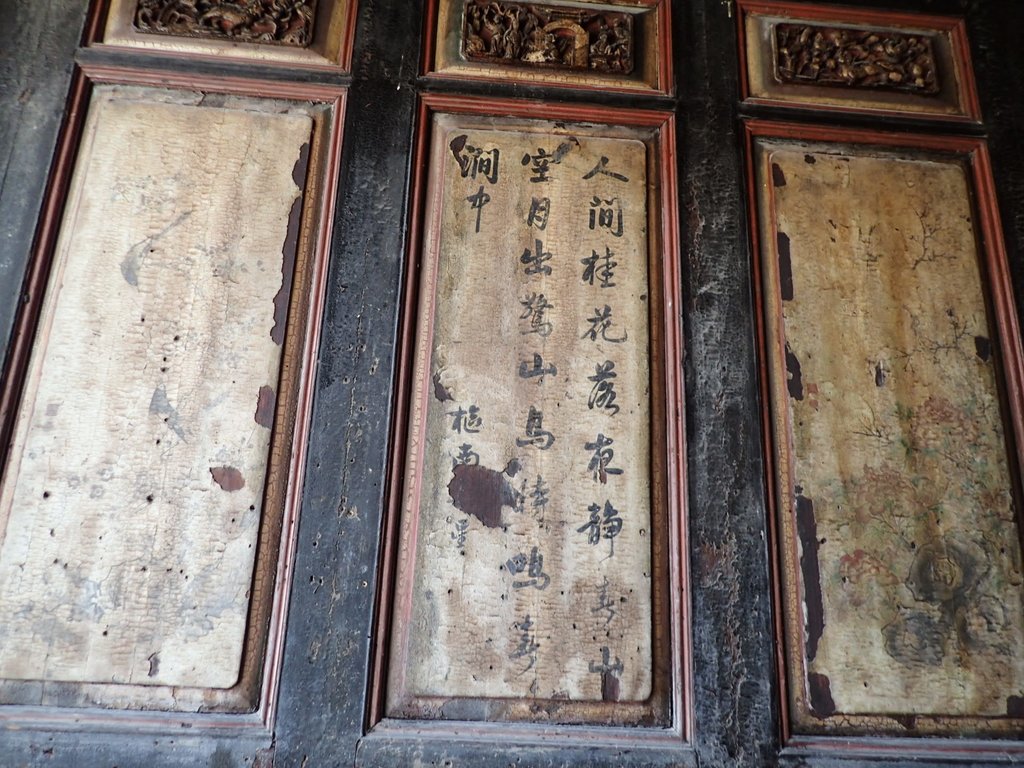 人間桂花落夜靜春山
空月出驚山鳥時鳴春
澗中